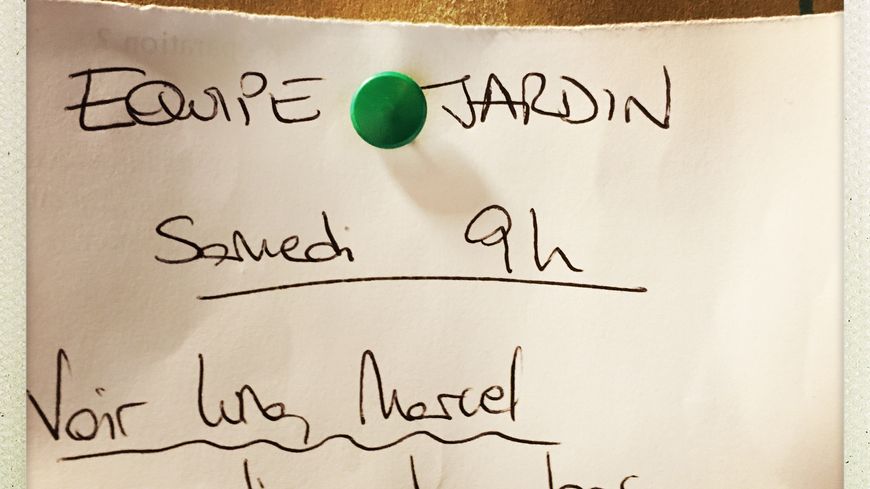 EQUIPE JARDIN
Samedi 9h
Voir Marcel